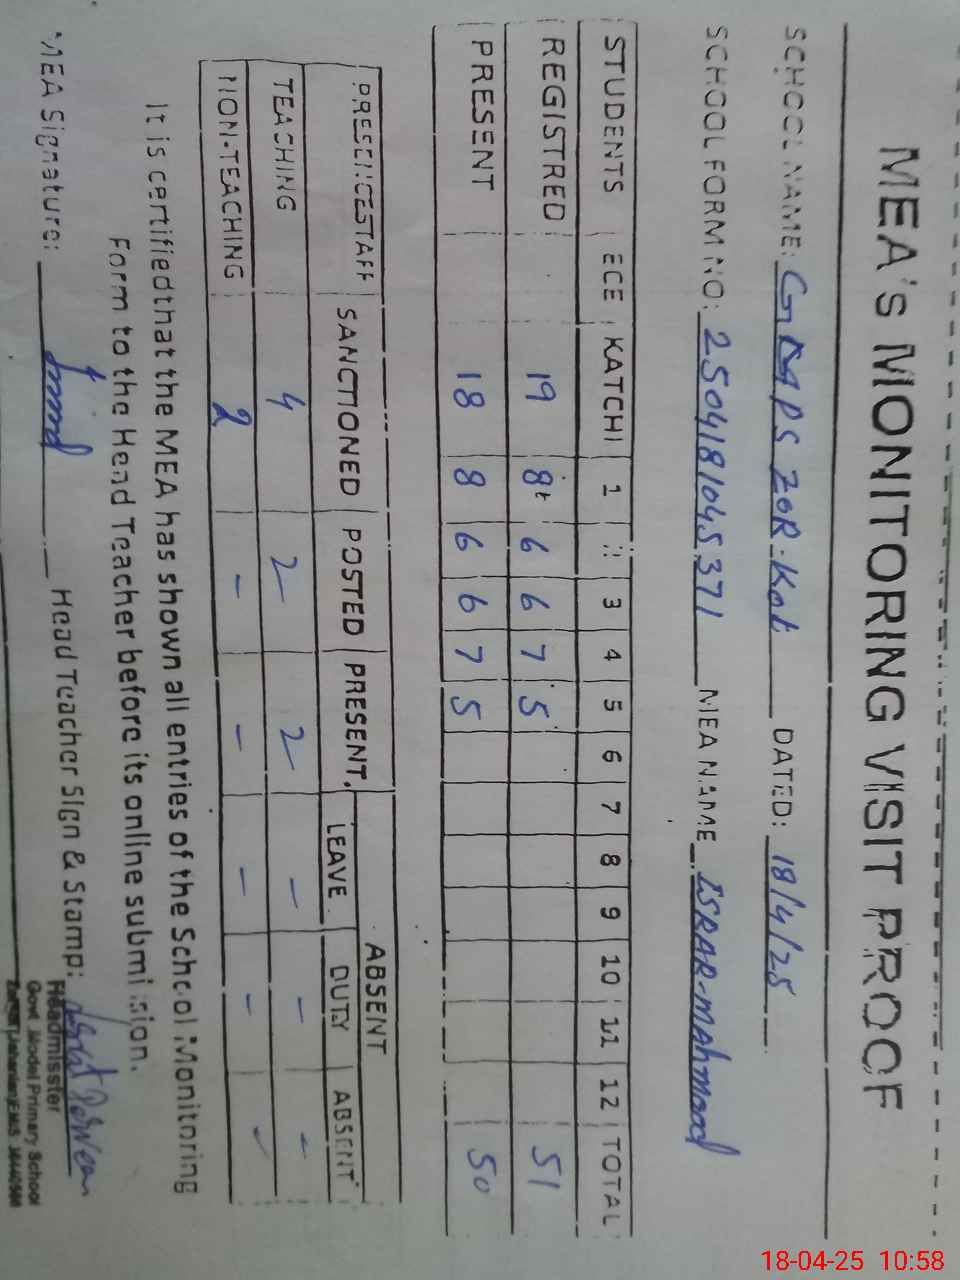 MEA'S MONITORING VISIT PROOF
SCHOOL NAME: GMPS ZOR-Kot DATED: 18/4/25
SCHOOL FORM NO: 2504181045371 MEA NAME ISRAR-mahmood
STUDENTS ECE KATCHI 1 3 4 5 6 7 8 9 10 11 12 TOTAL
REGISTRED 19 8 6 6 7 5 51
PRESENT 18 8 6 6 7 5 50
PRESENCE STAFF SANCTIONED POSTED PRESENT ABSENT
LEAVE DUTY ABSENT
TEACHING 4 2 2 - - -
NON-TEACHING 2 - - - -
It is certified that the MEA has shown all entries of the School Monitoring
Form to the Head Teacher before its online submission.
MEA Signature: Head Teacher Sign & Stamp:
Headmisster
Govt. Model Primary School
18-04-25 10:58